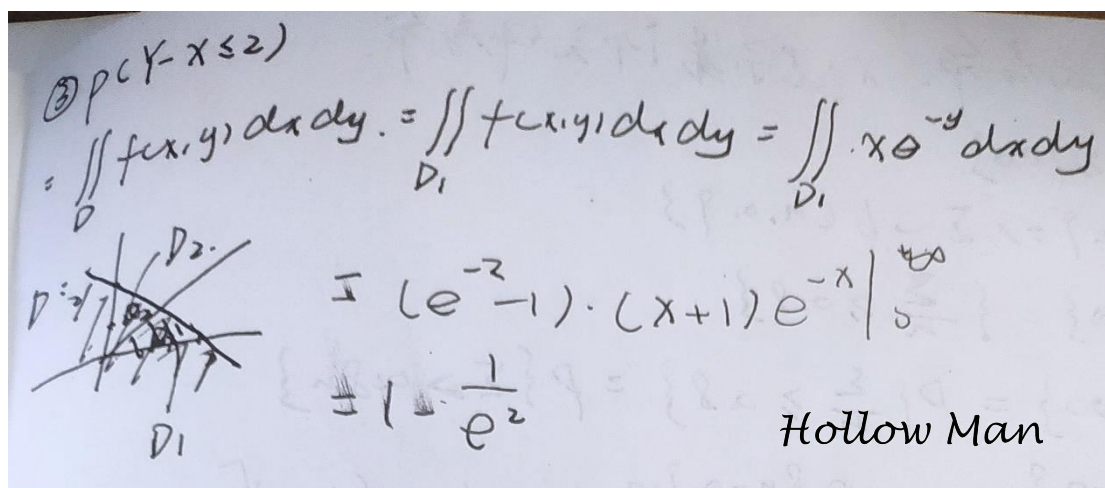 ③ P(Y-X≤2)
= ∬_D f(x,y) dxdy. = ∬_{D₁} f(x,y) dxdy = ∬_{D₁} xe^{-y} dxdy
D₂.
D:
= (e^{-2}-1)·(x+1)e^{-x} |_0^{+∞}
= 1 - \frac{1}{e^2}
D1
Hollow Man